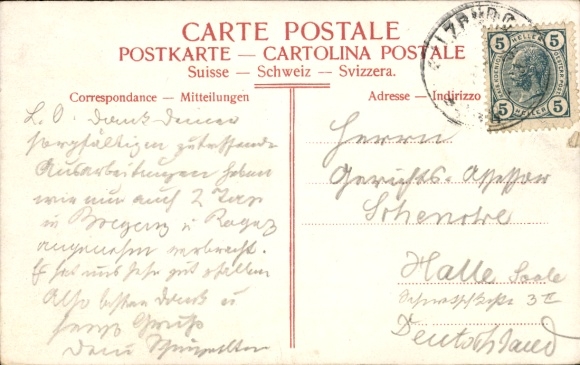 CARTE POSTALE
POSTKARTE — CARTOLINA POSTALE
Suisse — Schweiz — Svizzera.
Correspondance — Mitteilungen
Adresse — Indirizzo
5 HELLER 5
5 HELLER 5
SALZBURG
L. O. Dank Deinen
sorgfältigen zutreffenden
Ausarbeitungen haben
wir nun auch 2 Tage
in Bregenz u Ragaz
angenehm verbracht.
Es hat uns sehr gut gefallen
Also besten Dank u
herzl Gruß
Dein
Herrn
Gerichts-Assessor
Halle Saale
3 II
Deutschland